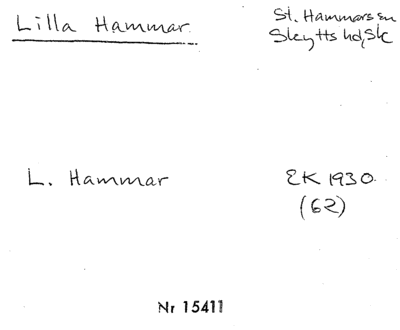 Lilla Hammar
St. Hammars sn
Skytts hd, Sk
L. Hammar
EK 1930
(62)
Nr 15411